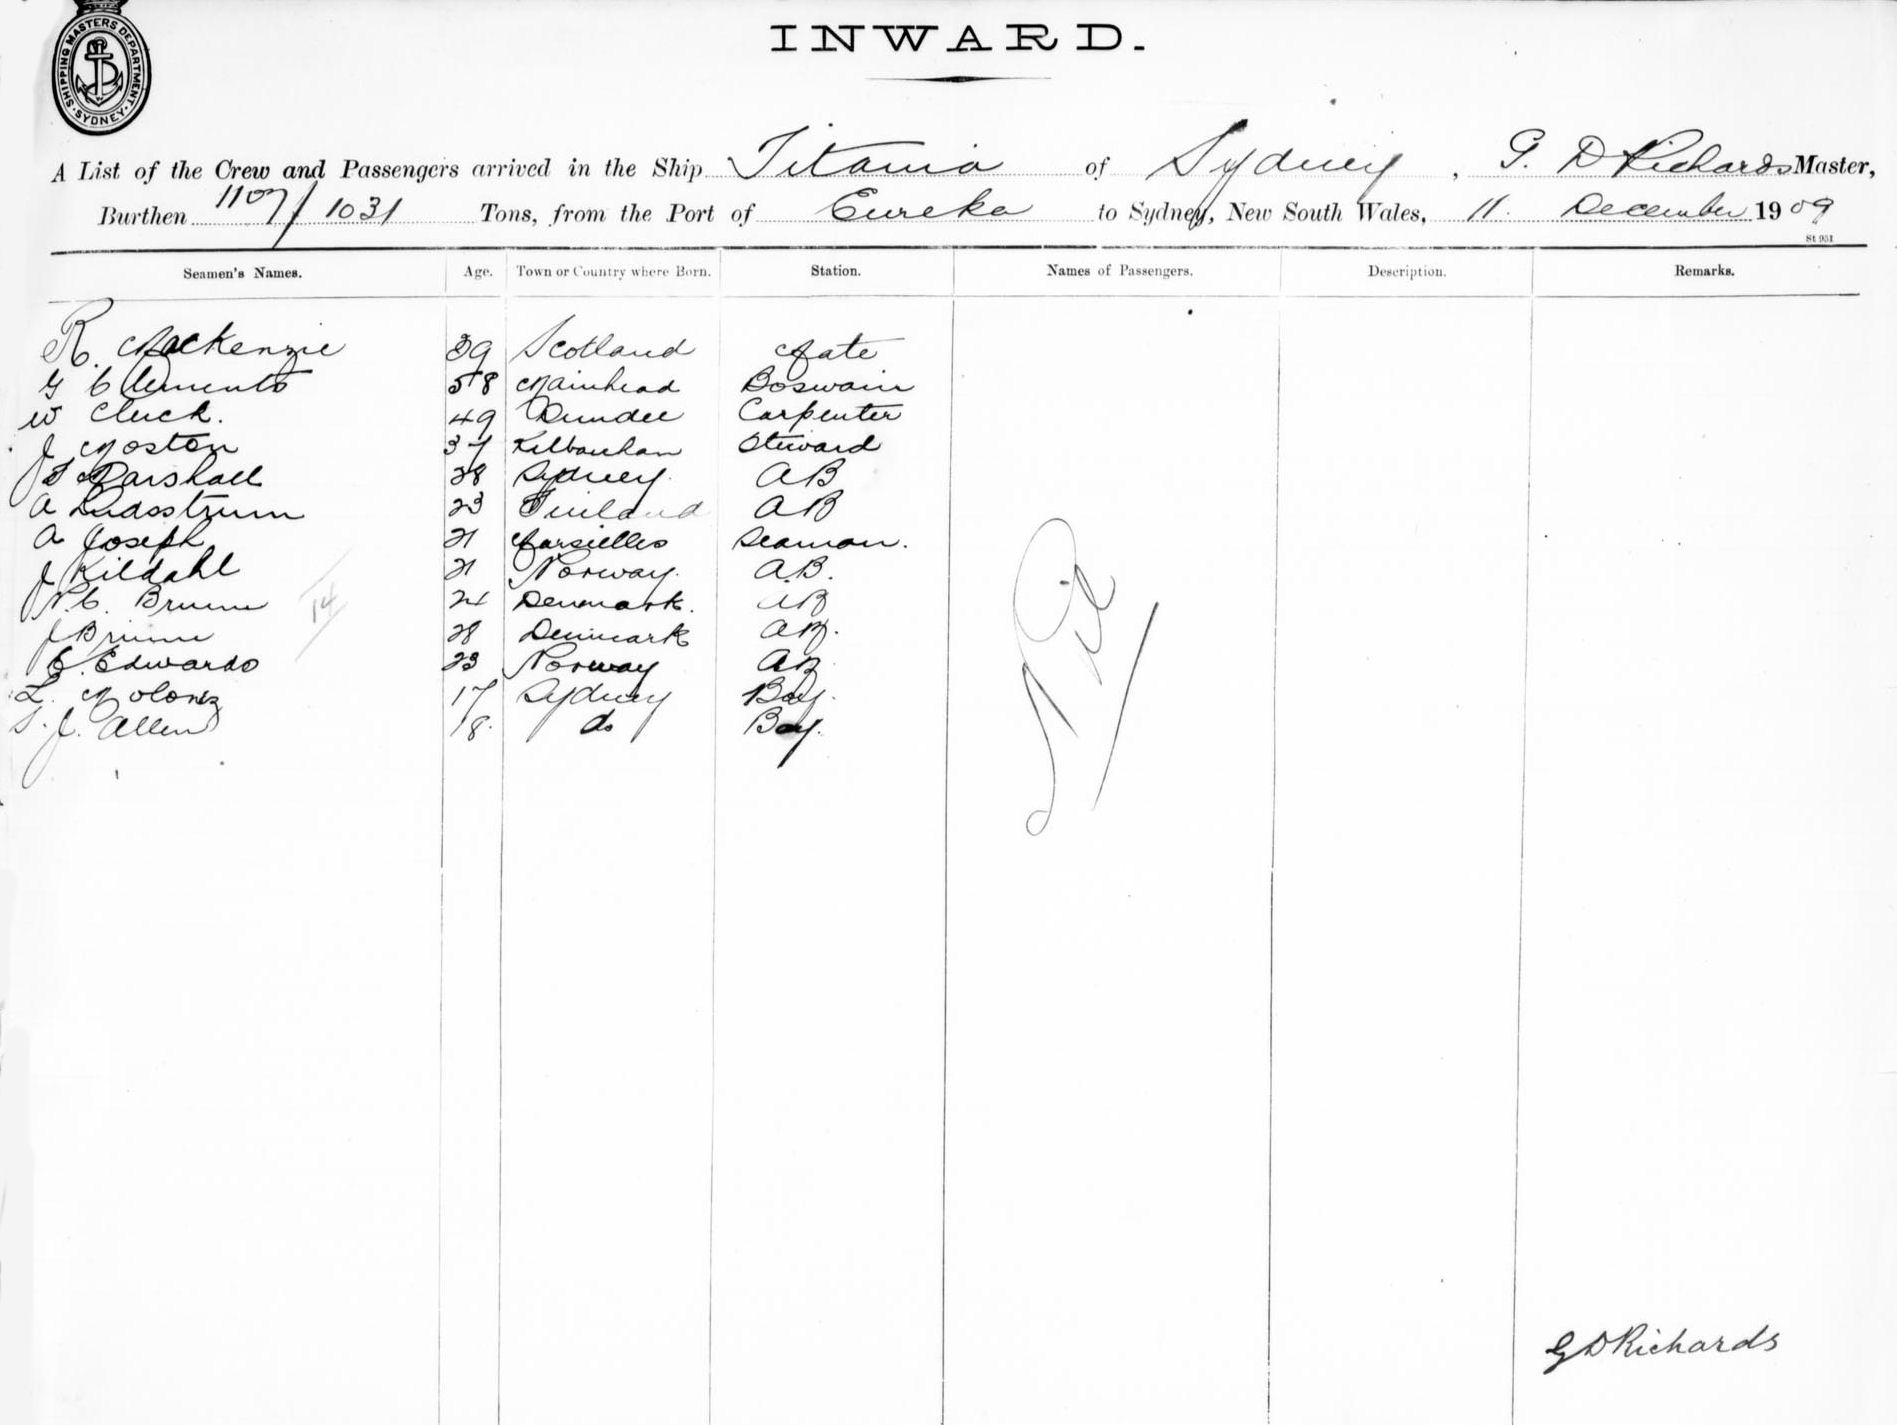 SHIPPING MASTERS DEPARTMENT. SYDNEY
INWARD.
A List of the Crew and Passengers arrived in the Ship Titania of Sydney, G. D Richards Master,
Burthen 1107/1031 Tons, from the Port of Eureka to Sydney, New South Wales, 11. December 1909
St 931
Seamen's Names. Age. Town or Country where Born. Station. Names of Passengers. Description. Remarks.
R. MacKenzie 39 Scotland Mate
G Clements 58 Mainhead Boswain
W Cluck. 49 Dundee Carpenter
J Moston 37 Kilbauhan Steward
Marshall 28 Sydney. AB
A Lidsstrum 23 Finland AB
A Joseph 21 Marsielles Seaman.
J Kildahl 21 Norway. A.B.
N.C. Bruun 24 Denmark. AB
J Bruun 28 Denmark AB.
E. Edwards 23 Norway AB
L. Moloney 17 Sydney Boy.
S. J. Allen 18. do Boy.
14
Nil
G D Richards